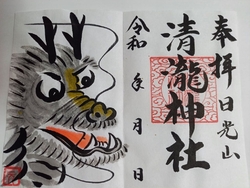 奉拝 日光山
清瀧神社
令和 年 月 日